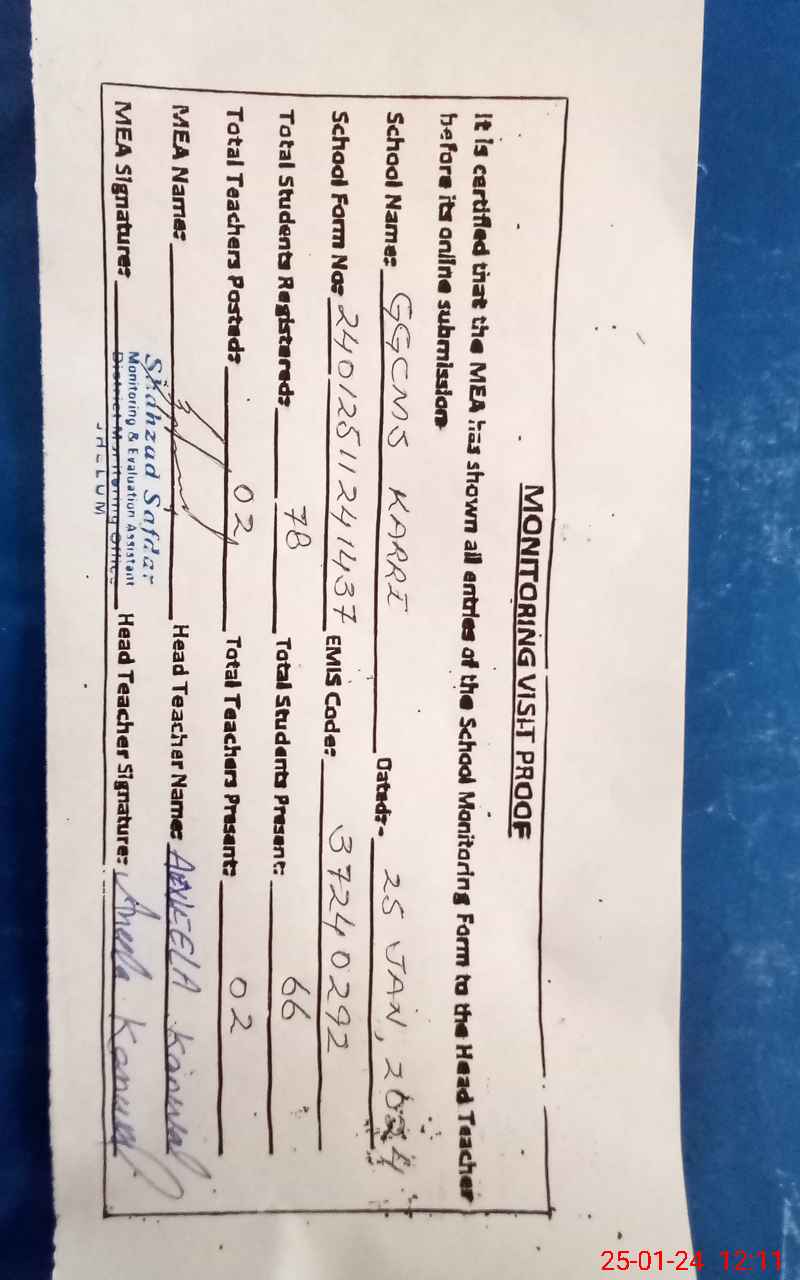 MONITORING VISIT PROOF
It is certified that the MEA has shown all entries of the School Monitoring Form to the Head Teacher
before its online submission
School Name: GGCMS KARRI Dated:- 25 JAN, 2024
School Form No: 2401251124 1437 EMIS Code: 37240292
Total Students Registered: 78 Total Students Present: 66
Total Teachers Posted: 02 Total Teachers Present: 02
MEA Name: Head Teacher Name: ANEELA Kanwal
Shahzad Safdar
Monitoring & Evaluation Assistant
District Monitoring Office
JHELUM
MEA Signature: Head Teacher Signature: Aneela Kanwal
25-01-24 12:11